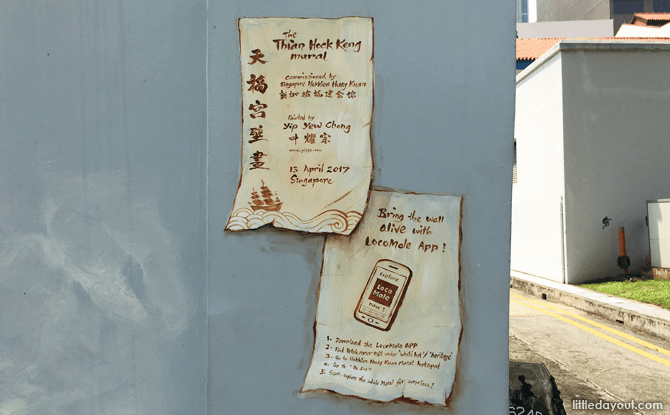 The
Thian Hock Keng
mural
天福宮壁畫
Commissioned by
Singapore Hokkien Huay Kuan
新加坡福建会馆
Painted by
Yip Yew Chong
叶耀宗
13 April 2017
Singapore
Bring the wall
alive with
LocoMole App!
Explore
Loco
Mole
now!
1. Download the LocoMole APP
2. Find Telok Ayer trail under
3. Go to Hokkien Huay Kuan mural hotspot
4. Go to "To Do"
5. Scan, explore the whole Mural for surprises!
littledayout.com